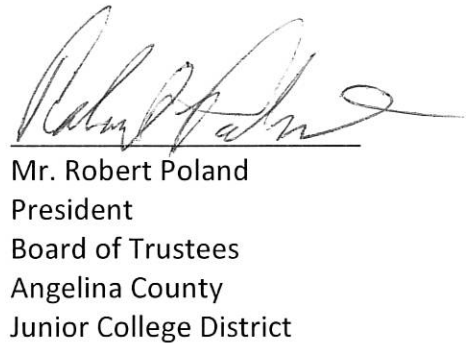 Robert Poland
Mr. Robert Poland
President
Board of Trustees
Angelina County
Junior College District